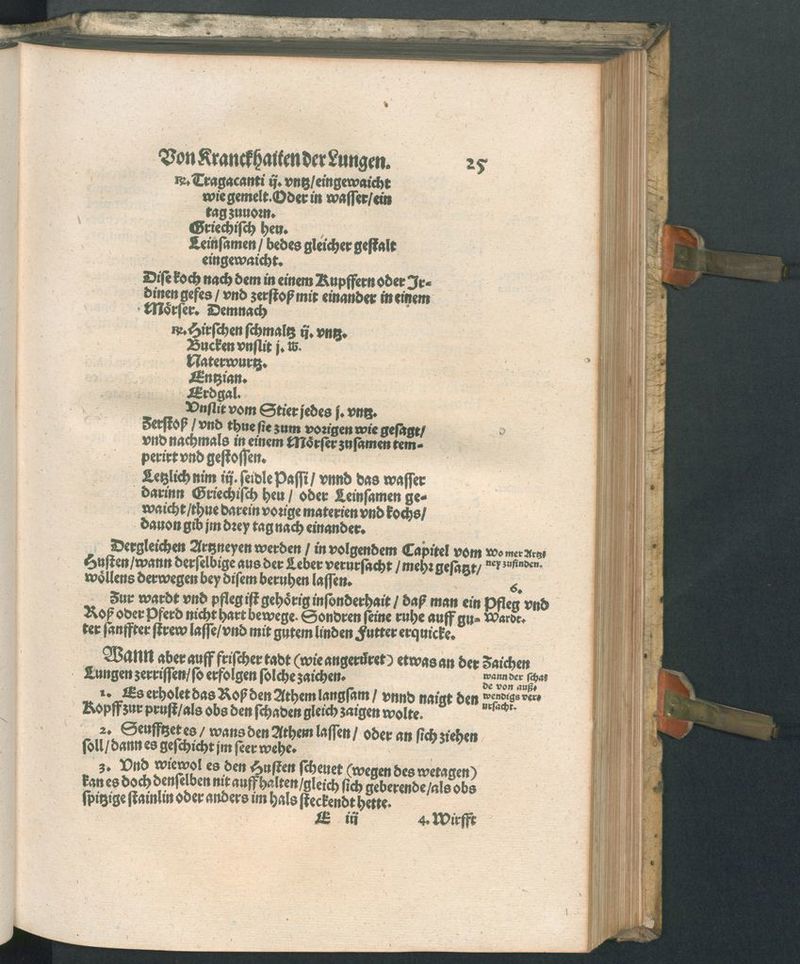 Von Kranckhaiten der Lungen. 25
℞. Tragacanti ij. vntz/eingewaicht
wie gemelt. Oder in wasser/ein
tag zuuorn.
Griechisch heu.
Leinsamen/ bedes gleicher gestalt
eingewaicht.
Dise koch nach dem in einem Kupffern oder Jr-
dinen gefes/ vnd zerstoß mit einander in einem
Mörser. Demnach
℞. Hirschen schmaltz ij. vntz.
Bucken vnslit j. ℔.
Naterwurtz.
Entzian.
Erdgal.
Vnslit vom Stier jedes j. vntz.
Zerstoß/ vnd thue sie zum vorigen wie gesagt/
vnd nachmals in einem Mörser zusamen tem-
perirt vnd gestossen.
Letzlich nim iij. seidle Passi/ vnnd das wasser
darinn Griechisch heu/ oder Leinsamen ge-
waicht/thue darein vorige materien vnd kochs/
dauon gib jm drey tag nach einander.
Dergleichen Artzneyen werden/ in volgendem Capitel vom
Husten/wann derselbige aus der Leber verursacht/mehr gesatzt/
wöllens derwegen bey disem beruhen lassen.
Wo mer Artz-
ney zufinden.
Zur wardt vnd pfleg ist gehörig insonderhait/ daß man ein
Roß oder Pferd nicht hart bewege. Sondren seine ruhe auff gu-
ter sanffter strew lasse/vnd mit gutem linden Futter erquicke.
6.
Pfleg vnd
Wardt.
Wann aber auff frischer tadt (wie angerüret) etwas an der
Lungen zerrissen/so erfolgen solche zaichen.
Zaichen
wann der scha-
de von auß-
wendigs ver-
ursacht.
1. Es erholet das Roß den Athem langsam/ vnnd naigt den
Kopff zur prust/als obs den schaden gleich zaigen wolte.
2. Seufftzet es/ wans den Athem lassen/ oder an sich ziehen
soll/dann es geschicht jm seer wehe.
3. Vnd wiewol es den Husten scheuet (wegen des wetagen)
kan es doch denselben nit auffhalten/gleich sich geberende/als obs
spitzige stainlin oder anders im hals steckendt hette.
E iij 4. Wirfft